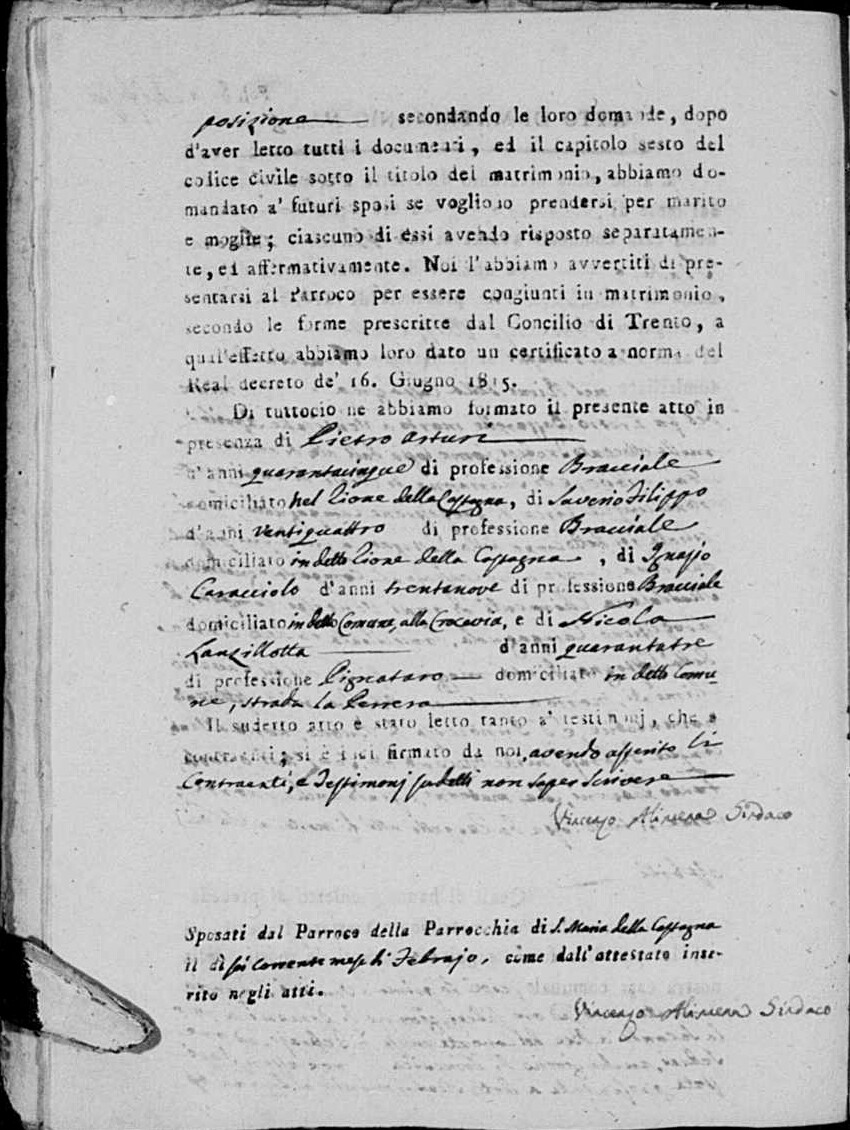 posizione secondando le loro domande, dopo
d'aver letto tutti i documenti, ed il capitolo sesto del
codice civile sotto il titolo del matrimonio, abbiamo do-
mandato a' futuri sposi se vogliono prendersi per marito
e moglie; ciascuno di essi avendo risposto separatamen-
te, ed affermativamente. Noi l'abbiamo avvertiti di pre-
sentarsi al Parroco per essere congiunti in matrimonio,
secondo le forme prescritte dal Concilio di Trento, a
qual'effetto abbiamo loro dato un certificato a norma del
Real decreto de' 16. Giugno 1815.
Di tuttociò ne abbiamo formato il presente atto in
presenza di Pietro Arturi
d'anni quarantacinque di professione Bracciale
domiciliato nel Rione della Cossagna, di Saverio Filippo
d'anni ventiquattro di professione Bracciale
domiciliato in detto Rione della Cossagna, di Ignazio
Caracciolo d'anni trentanove di professione Bracciale
domiciliato in detto Comune, alla Crocevia, e di Nicola
Lanzillotta d'anni quarantatre
di professione Pignataro domiciliato in detto Comu-
ne, strada la
Il sudetto atto è stato letto tanto a' testimonj, che a
contraenti; si è indi firmato da noi, avendo asserito li
Contraenti, e Testimonj sudetti non saper scrivere
Vincenzo Alimena Sindaco
Sposati dal Parroco della Parrocchia di S. Maria della Cossagna
il dì sei corrente mese di Febrajo, come dall'attestato inse-
rito negli atti.
Vincenzo Alimena Sindaco